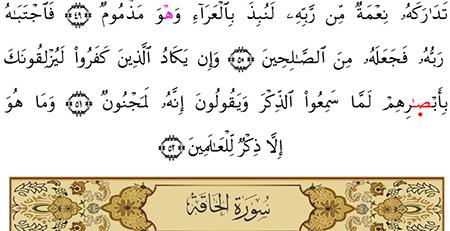 تَدَٰرَكَهُۥ نِعْمَةٌ مِّن رَّبِّهِۦ لَنُبِذَ بِٱلْعَرَآءِ وَهْوَ مَذْمُومٌ ۝٤٩ فَٱجْتَبَٰهُ
رَبُّهُۥ فَجَعَلَهُۥ مِنَ ٱلصَّٰلِحِينَ ۝٥٠ وَإِن يَكَادُ ٱلَّذِينَ كَفَرُوا۟ لَيُزْلِقُونَكَ
بِأَبْصَٰرِهِمْ لَمَّا سَمِعُوا۟ ٱلذِّكْرَ وَيَقُولُونَ إِنَّهُۥ لَمَجْنُونٌ ۝٥١ وَمَا هُوَ
إِلَّا ذِكْرٌ لِّلْعَٰلَمِينَ ۝٥٢
سُورَةُ الحَاقَّةِ